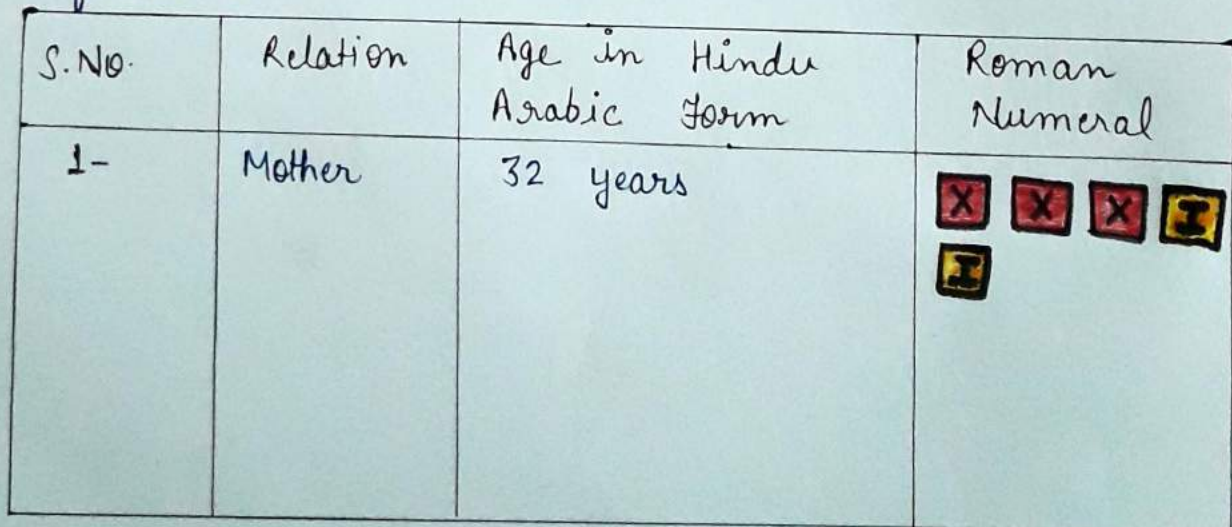 S.No. Relation Age in Hindu Roman
Arabic Form Numeral
1- Mother 32 years X X X I
I